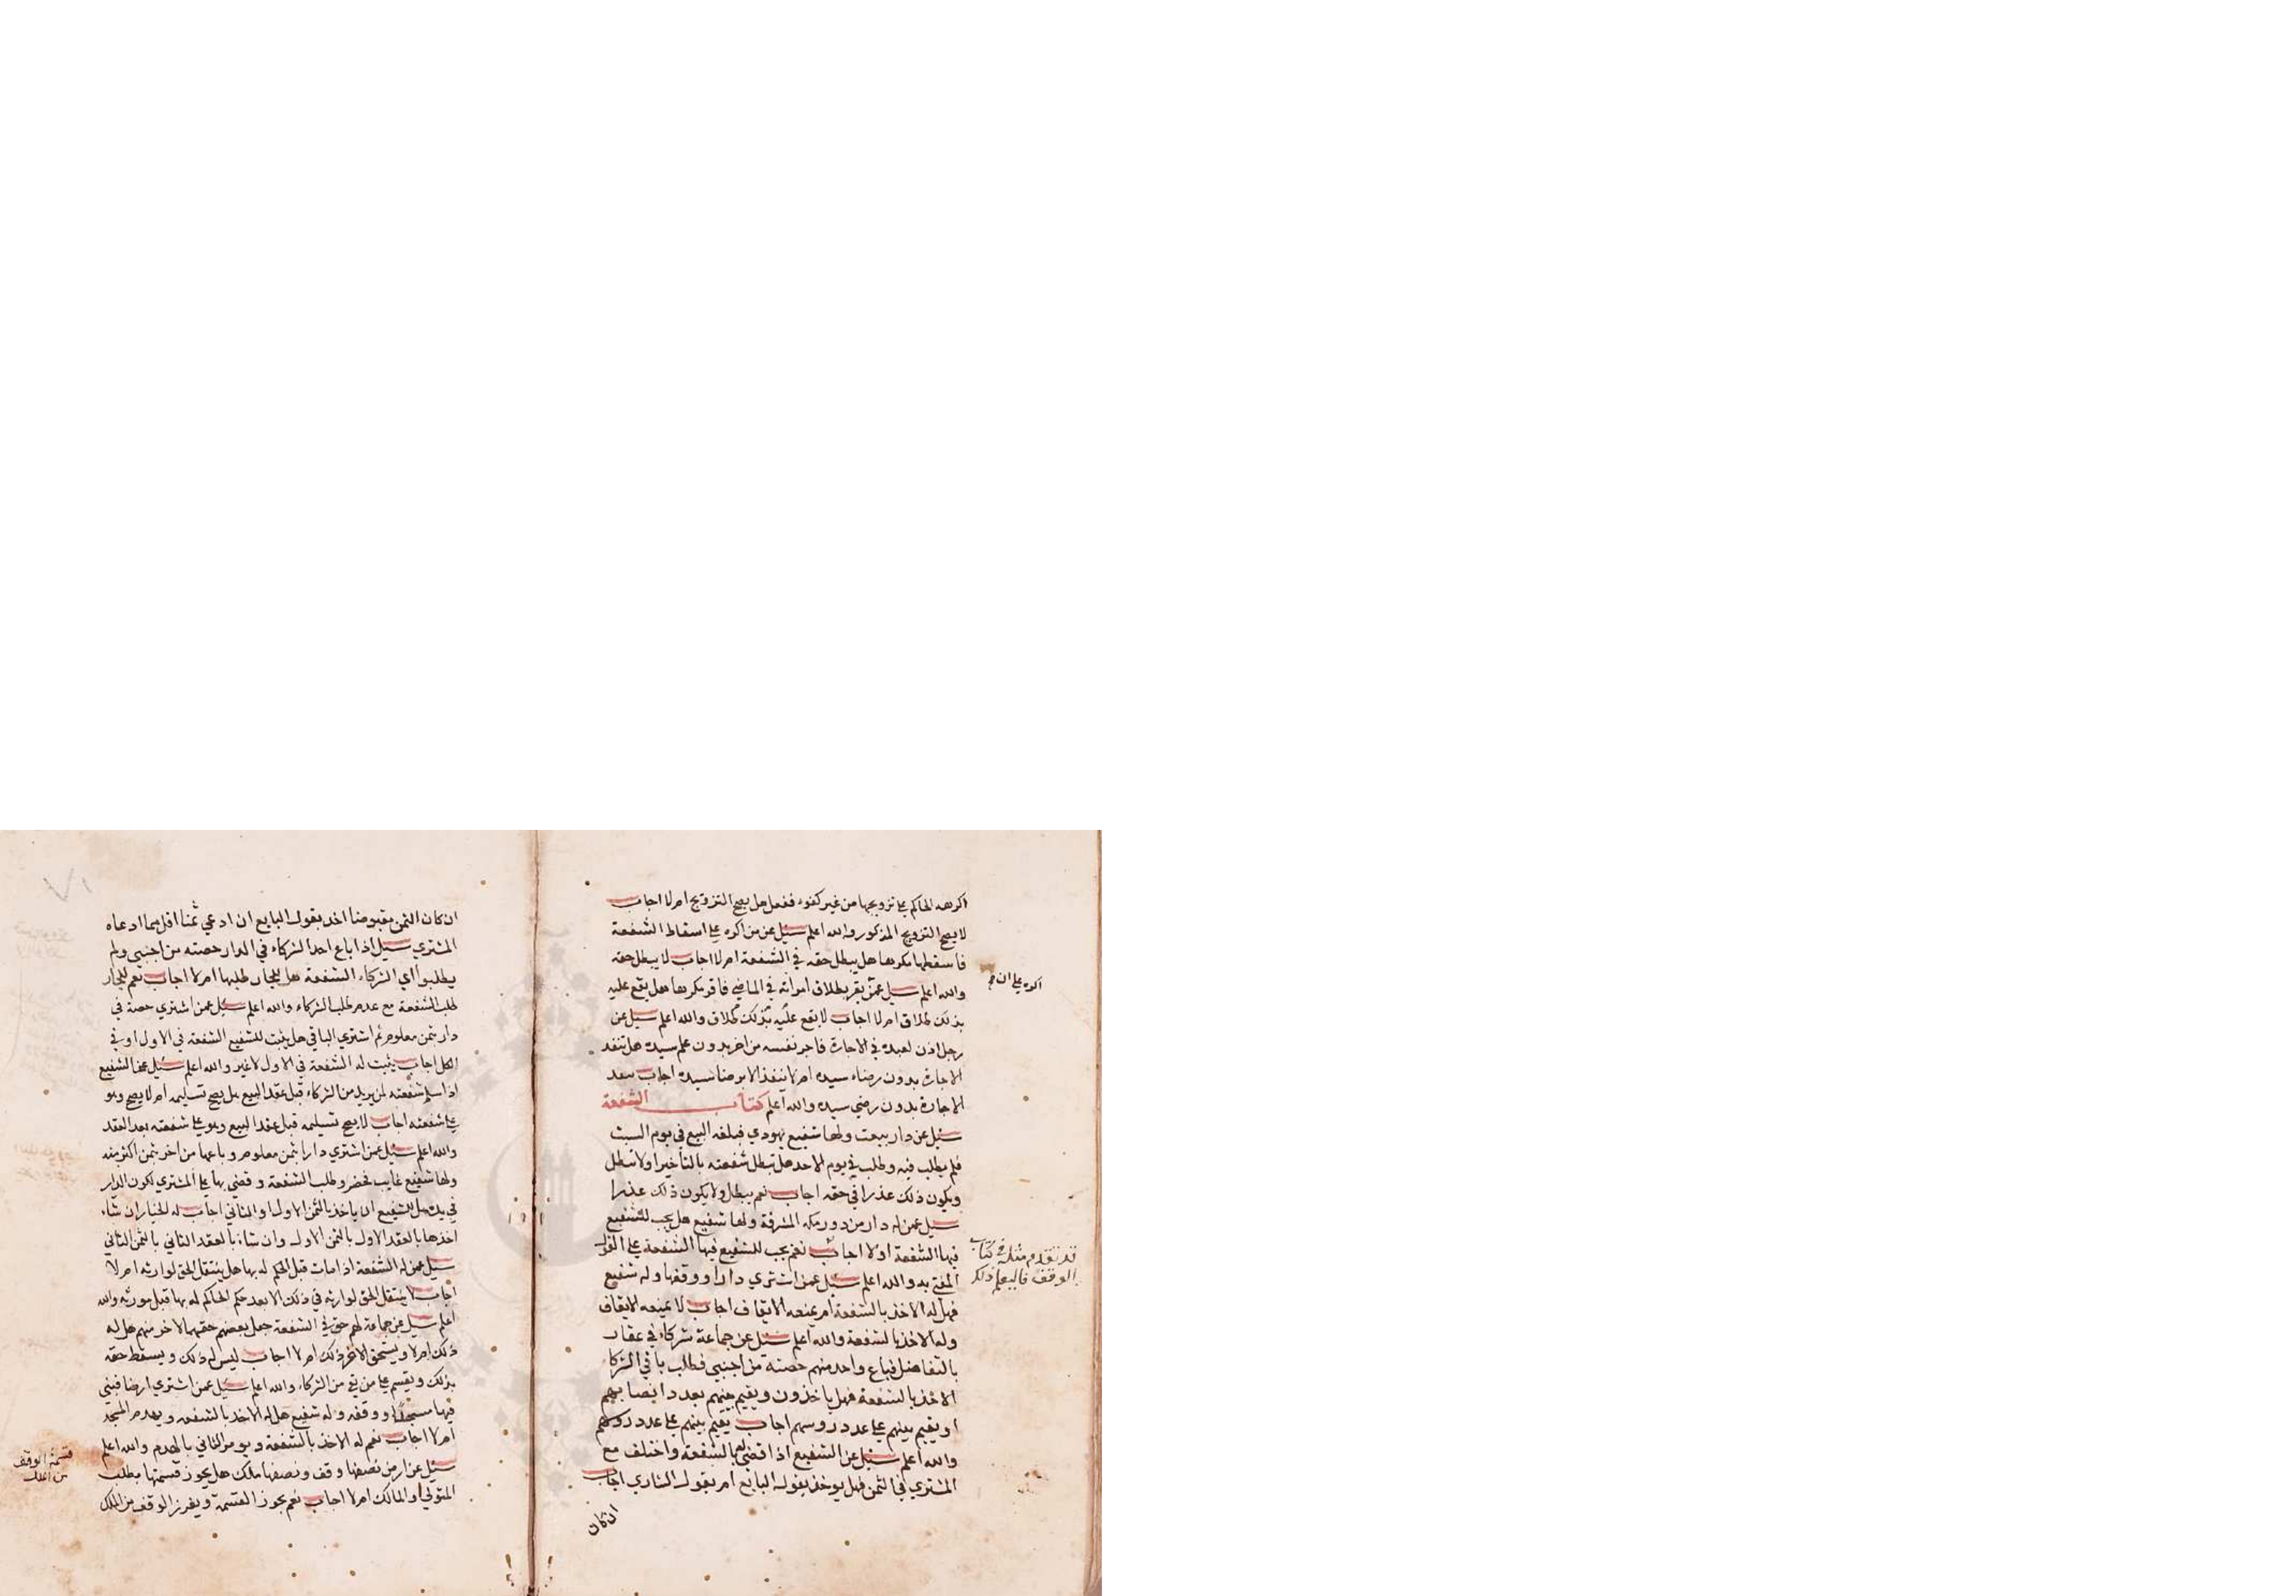 اكرهه الحاكم على تزويجها من غير كفوء ففعل هل يصح التزويج ام لا اجاب
لا يصح التزويج المذكور والله اعلم سئل عمن اكره على اسقاط الشفعة
فاسقطها مكرها هل يبطل حقه في الشفعة ام لا اجاب لا يبطل حقه
والله اعلم سئل عمن يقر بطلاق امراته في الماضي فاقر مكرها هل يقع عليه
بذلك طلاق ام لا اجاب لا يقع عليه بذلك طلاق والله اعلم سئل عن
رجل اذن لعبده في الاجارة فاجر نفسه من اخر بدون علم سيده هل تنفد
الاجارة بدون رضاء سيده ام لا تنفذ الا برضا سيده اجاب
الاجارة بدون رضى سيده والله اعلم كتاب الشفعة
سئل عن دار بيعت ولها شفيع يهودي فبلغه البيع في يوم السبت
فلم يطلب فيه وطلب في يوم الاحد هل تبطل شفعته بالتأخير او لا تبطل
ويكون ذلك عذرا في حقه اجاب نعم يبطل ولا يكون ذلك عذرا
سئل عمن له دار من دور مكه المشرفة ولها شفيع هل يجب للشفيع
فيها الشفعة او لا اجاب نعم يجب للشفيع فيها الشفعة على القول
المفتى به والله اعلم سئل عمن اشتري دارا ووقفها وله شفيع
فهل له الاخذ بالشفعة ام يمنعه الايقاف اجاب لا يمنعه الايقاف
وله الاخذ بالشفعة والله اعلم سئل عن جماعة شركاء في عقار
بالتفاضل فباع واحد منهم حصته من اجنبي فطلب باقي الشركا
الاخذ بالشفعة فهل ياخذون ويقيم بينهم بعدد انصابهم
او يقيم بينهم على عدد روسهم اجاب يقيم بينهم على عدد روسهم
والله اعلم سئل عن الشفيع اذا قضى لها بالشفعة واختلف مع
المشتري في الثمن فهل يوخذ بقول البايع ام بقول الشاري اجاب
ان كان
اكره على ان
قد تقدم مثله في كتاب
الوقف فاليعلم ذلك
ان كان الثمن مقبوضا اخذ بقول البايع ان ادعي ثمنا اقل مما ادعاه
المشتري سئل اذا باع احد الشركاء في الدار حصته من اجنبي ولم
يطلبوا اي الشركاء الشفعة هل للجار طلبها ام لا اجاب نعم للجار
طلب الشفعة مع عدم طلب الشركاء والله اعلم سئل عمن اشتري حصة في
دار بثمن معلوم ثم اشتري الباقي هل يثبت للشفيع الشفعة في الاول او في
الكل اجاب يثبت له الشفعة في الاول لا غير والله اعلم سئل عن الشفيع
اذا سلم شفعته لمن يريد من الشركاء قبل عقد البيع هل يصح تسليمه ام لا يصح وهو
على شفعته اجاب لا يصح تسليمه قبل عقد البيع وهو على شفعته بعد العقد
والله اعلم سئل عمن اشتري دارا بثمن معلوم وباعها من اخر بثمن اكثر منه
ولها شفيع غايب فحضر وطلب الشفعة وقضي بها على المشتري لكون الدار
في يده هل للشفيع ان ياخذ بالثمن الاول او الثاني اجاب له الخيار ان شاء
اخذها بالعقد الاول بالثمن الاول وان شاء بالعقد الثاني بالثمن الثاني
سئل عمن له الشفعة اذا مات قبل الحكم له بها هل ينتقل الحق لوارثه ام لا
اجاب لا ينتقل الحق لوارثه في ذلك الا بعد حكم الحاكم له بها قبل موته والله
اعلم سئل عن جماعة لهم حق في الشفعة جعل بعضهم حقهم الاخر منهم هل له
ذلك ام لا ويستحق الاخر ذلك ام لا اجاب ليس له ذلك ويسقط حقه
بذلك ويقسم على من بقي من الشركاء والله اعلم سئل عمن اشتري ارضا فبنى
فيها مسجدا ووقفه وله شفيع هل له الاخذ بالشفعه ويهدم المسجد
ام لا اجاب نعم له الاخذ بالشفعة ويومر الثاني بالهدم والله اعلم
سئل عن ارض نصفها وقف ونصفها ملك هل يجوز قسمتها بطلب
المتولي او المالك ام لا اجاب نعم يجوز القسمة ويفرز الوقف من الملك
قسمة الوقف
من الملك